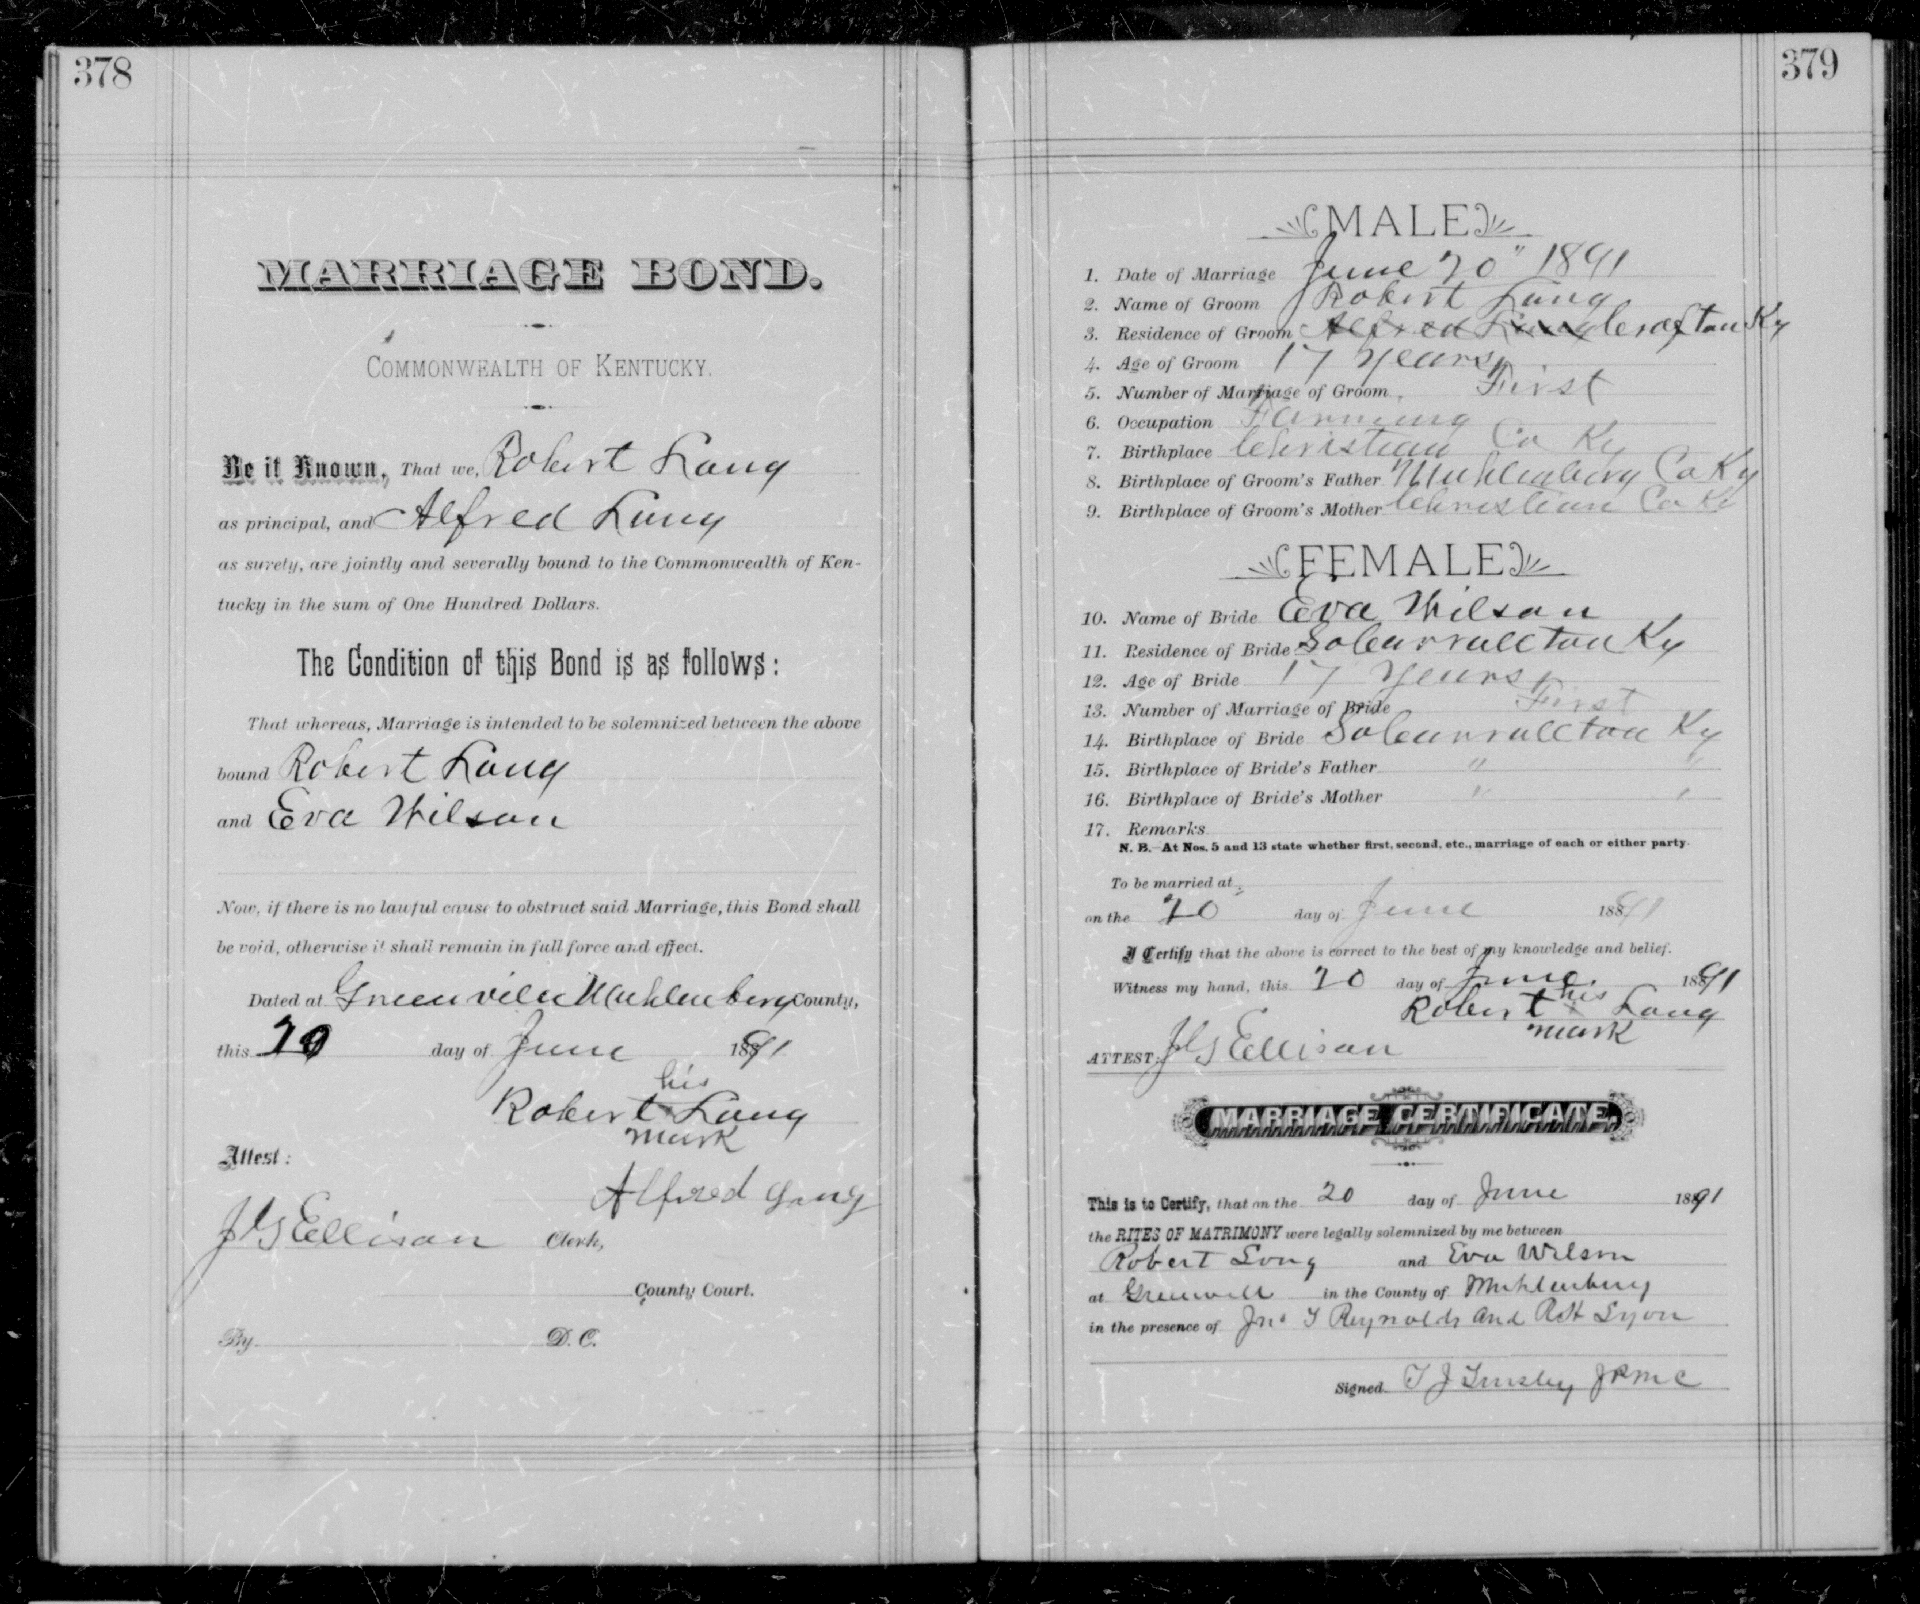 378
MARRIAGE BOND.
COMMONWEALTH OF KENTUCKY.
Be it Known, That we, Robert Long
as principal, and Alfred Long
as surety, are jointly and severally bound to the Commonwealth of Ken-
tucky in the sum of One Hundred Dollars.
The Condition of this Bond is as follows:
That whereas, Marriage is intended to be solemnized between the above
bound Robert Long
and Eva Wilson
Now, if there is no lawful cause to obstruct said Marriage, this Bond shall
be void, otherwise it shall remain in full force and effect.
Dated at Greenville Muhlenberg County,
this 20 day of June 1891
his
Robert x Long
mark
Attest:
Alfred Long
J G Ellison Clerk,
County Court.
By D. C.
379
MALE
1. Date of Marriage June 20" 1891
2. Name of Groom Robert Long
3. Residence of Groom Alfred Long Crofton Ky
4. Age of Groom 17 years
5. Number of Marriage of Groom First
6. Occupation Farming
7. Birthplace Christian Co Ky
8. Birthplace of Groom's Father Muhlenberg Co Ky
9. Birthplace of Groom's Mother Christian Co Ky
FEMALE
10. Name of Bride Eva Wilson
11. Residence of Bride So Carrollton Ky
12. Age of Bride 17 years
13. Number of Marriage of Bride First
14. Birthplace of Bride So Carrollton Ky
15. Birthplace of Bride's Father " "
16. Birthplace of Bride's Mother " "
17. Remarks
N. B.—At Nos. 5 and 13 state whether first, second, etc., marriage of each or either party.
To be married at
on the 20 day of June 1891
I Certify that the above is correct to the best of my knowledge and belief.
Witness my hand, this 20 day of June 1891
his
Robert x Long
mark
ATTEST: J G Ellison
MARRIAGE CERTIFICATE.
This is to Certify, that on the 20 day of June 1891
the RITES OF MATRIMONY were legally solemnized by me between
Robert Long and Eva Wilson
at Greenvill in the County of Muhlenberg
in the presence of Jno T Reynolds and R H Lyon
Signed T J Tinsley J P M C